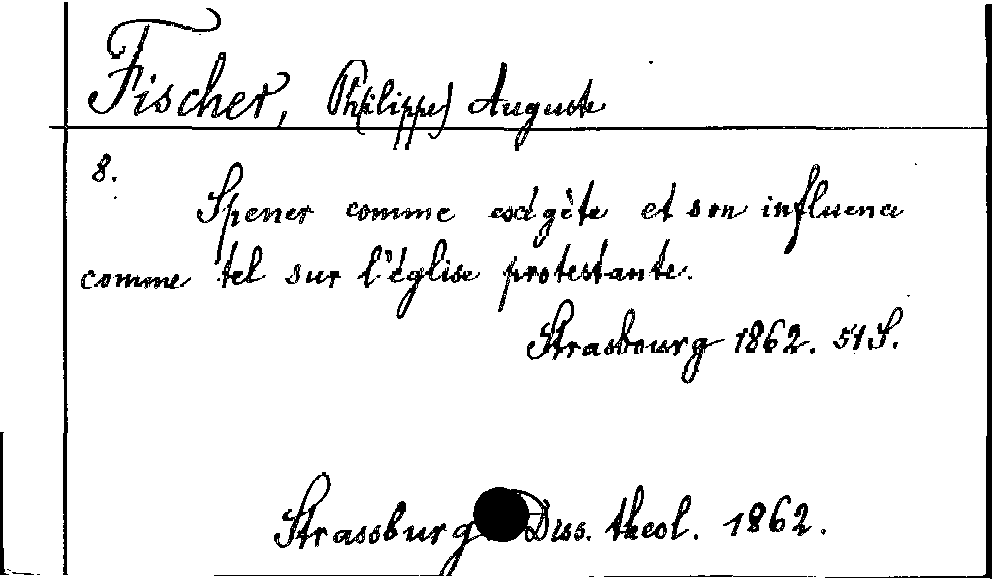 Fischer, Ph(ilippe) Auguste
8.
Spener comme exégète et son influence
comme tel sur l'église protestante.
Strasbourg 1862. 51 S.
Strassburg Diss. theol. 1862.